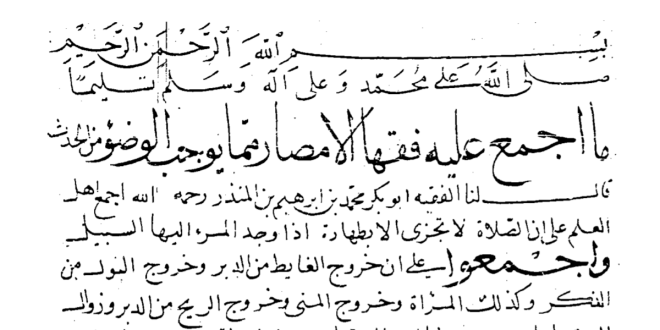 بسم الله الرحمن الرحيم
صلى الله على محمد وعلى آله وسلم تسليما
ما اجمع عليه فقهاء الامصار مما يوجب الوضوء من الحدث
قال لنا الفقيه ابو بكر محمد بن ابرهيم بن المنذر رحمه الله اجمع اهل
العلم على ان الصلاة لا تجزى الا بطهارة اذا وجد المرء اليها السبيل
واجمعوا على ان خروج الغايط من الدبر وخروج البول من
الذكر وكذلك المرأة وخروج المنى وخروج الريح من الدبر وزوال